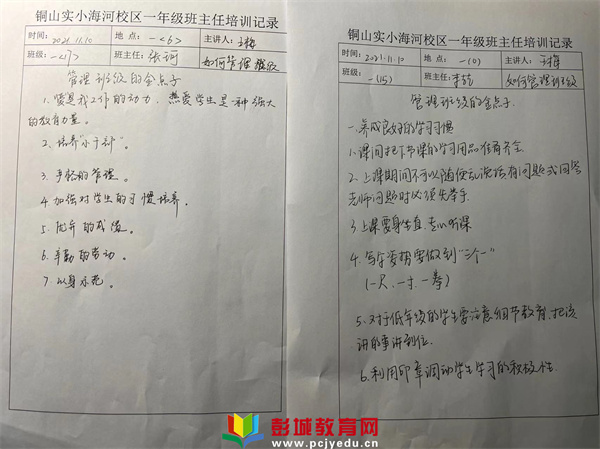 铜山实小海河校区一年级班主任培训记录
时间： 2021.11.10 地 点： 一<6> 主讲人： 王梅
班级： 一<17> 班主任： 张珂 如何管理班级
管理班级的金点子
1. 爱是我工作的动力，热爱学生是一种强大
的教育力量。
2. 培养“小干部”。
3. 手恰的管理。
4. 加强对学生的习惯培养。
5. 优弃的成绩。
6. 辛勤的劳动。
7. 以身示范。
铜山实小海河校区一年级班主任培训记录
时间： 2021.11.10 地 点： 一(6) 主讲人： 王梅
班级： 一(15) 班主任： 李 如何管理班级
管理班级的金点子
一. 养成良好的学习习惯
1. 课间把下节课的学习用品准备齐全.
2. 上课期间不可以随便乱说话有问题或回答
老师问题时必须先举手.
3. 上课要身坐直. 专心听课
4. 写字姿势要做到“三个一”
(一尺、一寸、一拳)
5. 对于低年级的学生要注意细节教育, 把该
讲的事讲到位.
6. 利用印章调动学生学习的积极性.
彭城教育网
www.pcjyedu.cn